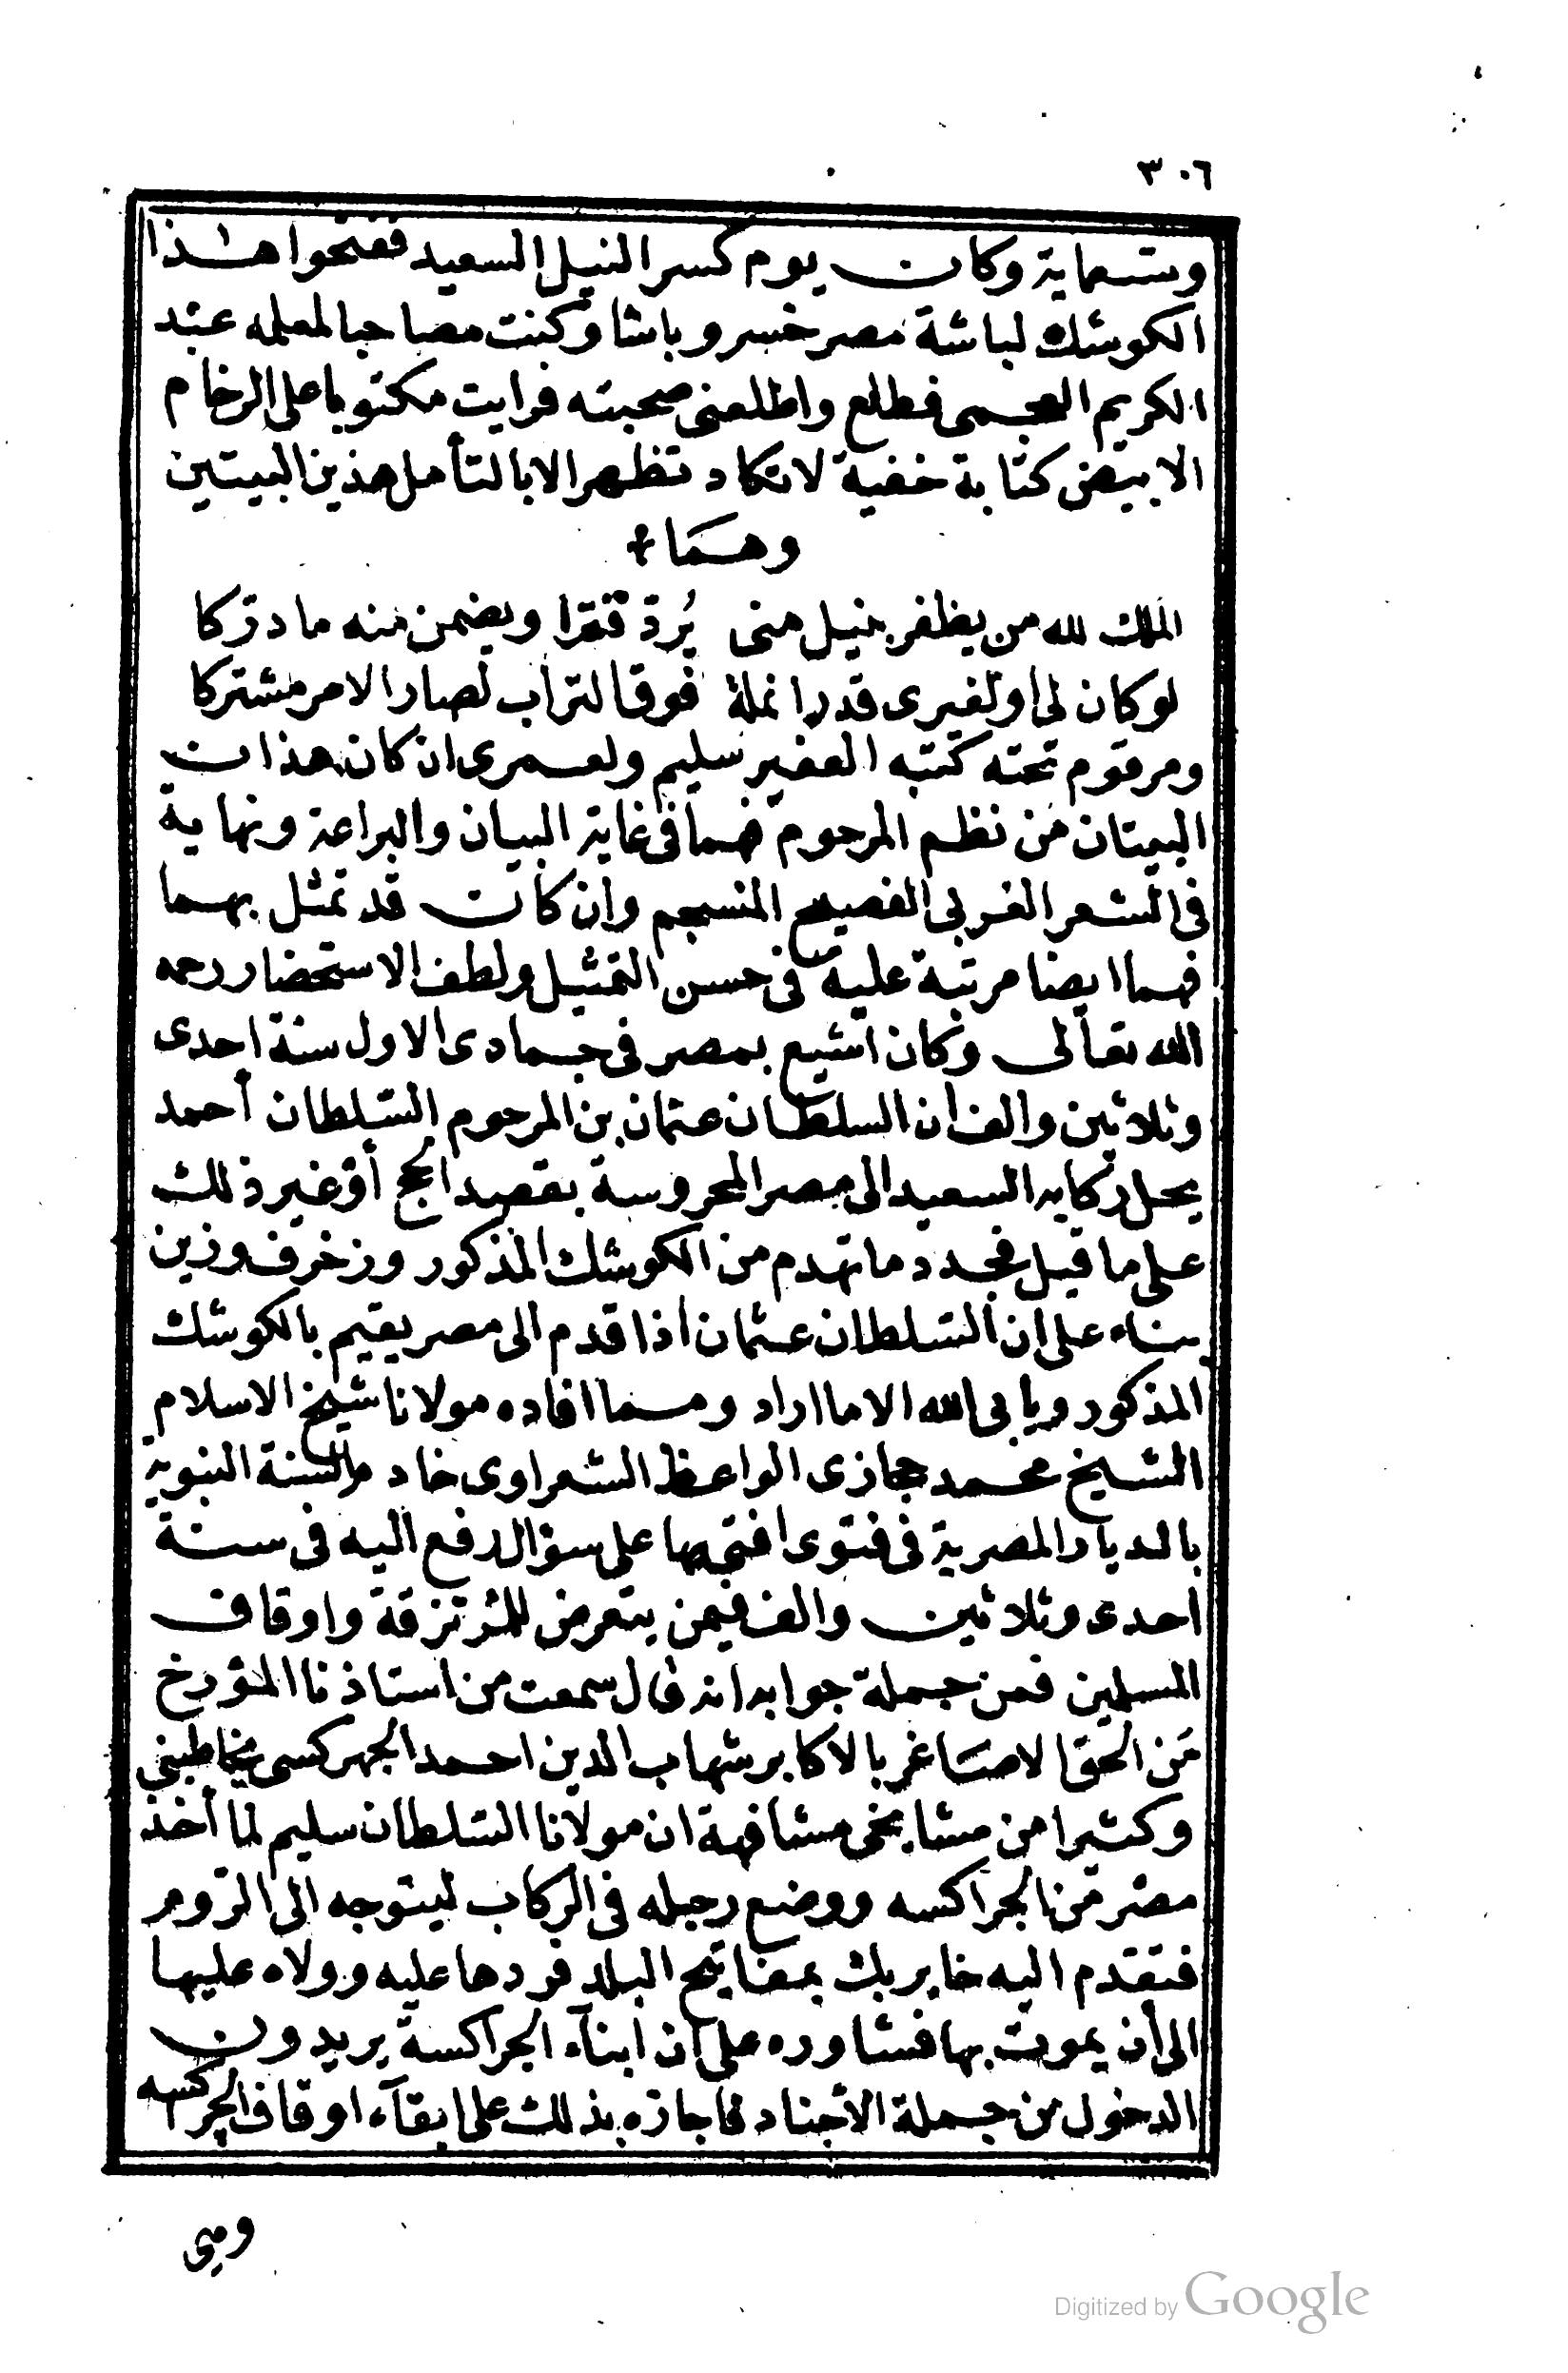 ٣٠٦
وستعماية وكان يوم كسر النيل السعيد ففتحوا هذا
الكوشك لباشة مصر خسرو باشا وكنت مصاحبا لمعلمه عبد
الكريم العجمى فطلع واطلعنى صحبته فرايت مكتوبا على الرخام
الابيض كتابة خفية لا تكاد تظهر الا بالتأمل هذين البيتين
وهما
الملك لله من يظفر بنيل منى يرده قهرا ويضمن منه ما دركا
لو كان لى او لغيرى قدر انملة فوق التراب لصار الامر مشتركا
ومرقوم تحته كتبه الفقير سليم ولعمرى ان كان هذان
البيتان من نظم المرحوم فهما فى غاية البيان والبراعة ونهاية
فى الشعر العربى الفصيح المنسجم وان كان قد تمثل بهما
فهما ايضا مرتبة علية فى حسن التمثيل ولطف الاستحضار رحمه
الله تعالى وكان اشيع بمصر فى جمادى الاول سنة احدى
وثلاثين والف ان السلطان عثمان بن المرحوم السلطان أحمد
يحل ركابه السعيد الى مصر المحروسة بقصد الحج أو غير ذلك
على ما قيل فجدد ما تهدم من الكوشك المذكور وزخرف وزين
بناء على ان السلطان عثمان اذا قدم الى مصر يقيم بالكوشك
المذكور ويابى الله الا ما اراد ومما افاده مولانا شيخ الاسلام
الشيخ محمد حجازى الواعظ الشعراوى خادم السنة النبوية
بالديار المصرية فى فتوى افتى بها على سؤال رفع اليه فى سنة
احدى وثلاثين والف فيمن يتعرض للمرتزقة واوقاف
المسلمين فمن جملة جوابه انه قال سمعت من استاذنا المؤرخ
من الحق الاصاغر بالاكابر شهاب الدين احمد الجهركسى يخاطبنى
وكثيرا من مشايخى مشافهة ان مولانا السلطان سليم لما أخذ
مصر من الجراكسه ووضع رجله فى الركاب ليتوجه الى الروم
فتقدم اليه خاير بك بمفاتيح البلد فردها عليه وولاه عليها
الى أن يموت بها فشاوره على ان ابنآء الجراكسة يريدون
الدخول من جملة الأجناد فاجازه بذلك على ابقآء اوقاف الجراكسه